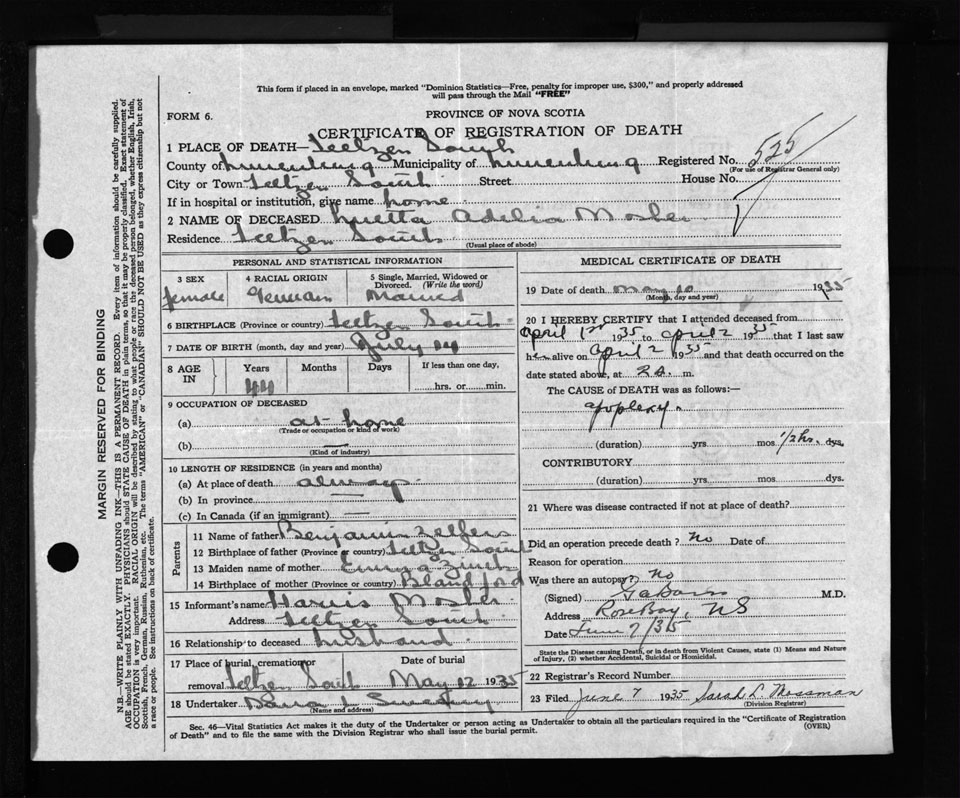 This form if placed in an envelope, marked "Dominion Statistics—Free, penalty for improper use, $300," and properly addressed
will pass through the Mail "FREE"
FORM 6.
PROVINCE OF NOVA SCOTIA
CERTIFICATE OF REGISTRATION OF DEATH
1 PLACE OF DEATH— Feltzen South
County of Lunenburg Municipality of Lunenburg Registered No. 525
(For use of Registrar General only)
City or Town Feltzen South Street House No.
If in hospital or institution, give name home
2 NAME OF DECEASED Luetta Adelia Mosher
Residence Feltzen South
(Usual place of abode)
PERSONAL AND STATISTICAL INFORMATION
3 SEX 4 RACIAL ORIGIN 5 Single, Married, Widowed or Divorced. (Write the word)
female German Married
6 BIRTHPLACE (Province or country) Feltzen South
7 DATE OF BIRTH (month, day and year) July 14
8 AGE IN Years Months Days If less than one day,
44 hrs. or min.
9 OCCUPATION OF DECEASED
(a) at home
(Trade or occupation or kind of work)
(b) —
(Kind of industry)
10 LENGTH OF RESIDENCE (in years and months)
(a) At place of death always
(b) In province —
(c) In Canada (if an immigrant) —
Parents
11 Name of father Benjamin
12 Birthplace of father (Province or country) Feltzen South
13 Maiden name of mother Zinck
14 Birthplace of mother (Province or country) Blandford
15 Informant's name Harris Mosher
Address Feltzen South
16 Relationship to deceased husband
17 Place of burial, cremation or removal Feltzen South Date of burial May 12 1935
18 Undertaker
(Name and address)
MEDICAL CERTIFICATE OF DEATH
19 Date of death May 10 1935
(Month, day and year)
20 I HEREBY CERTIFY that I attended deceased from
April 1st 1935 to April 2 1935 that I last saw
h alive on April 2 1935 and that death occurred on the
date stated above, at 2 a. m.
The CAUSE of DEATH was as follows:—
Apoplexy.
(duration) yrs mos 1/2 hr. dys.
CONTRIBUTORY
(duration) yrs. mos. dys.
21 Where was disease contracted if not at place of death?
Did an operation precede death? No Date of
Reason for operation
Was there an autopsy? No
(Signed) M.D.
Address Rose Bay, NS
Date June 7/35
State the Disease causing Death, or in death from Violent Causes, state (1) Means and Nature
of Injury, (2) whether Accidental, Suicidal or Homicidal.
22 Registrar's Record Number
23 Filed June 7 1935 Sarah L. Mossman
(Division Registrar)
Sec. 46—Vital Statistics Act makes it the duty of the Undertaker or person acting as Undertaker to obtain all the particulars required in the "Certificate of Registration
of Death" and to file the same with the Division Registrar who shall issue the burial permit.
(OVER)
MARGIN RESERVED FOR BINDING
N.B.—WRITE PLAINLY WITH UNFADING INK—THIS IS A PERMANENT RECORD. Every item of information should be carefully supplied.
AGE should be stated EXACTLY. PHYSICIANS should STATE CAUSE OF DEATH in plain terms, so that it may be properly classified. Exact statement of
OCCUPATION is very important. RACIAL ORIGIN will be described by stating to what people or race the deceased person belonged, whether English, Irish,
Scottish, French, German, Russian, Ruthenian, etc. The terms "AMERICAN" or "CANADIAN" SHOULD NOT BE USED as they express citizenship but not
a race or people. See instructions on back of certificate.